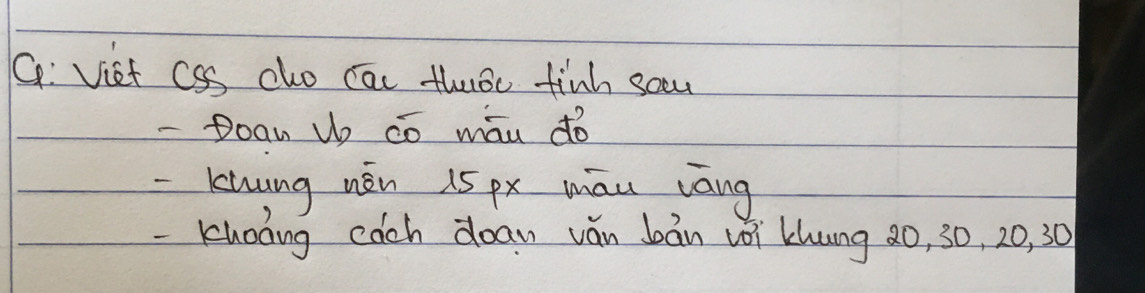 Q: Viết css cho các thuộc tính sau
- Đoạn vb có màu đỏ
- khung nền 15px màu vàng
- khoảng cách đoạn văn bản với khung 20, 30, 20, 30